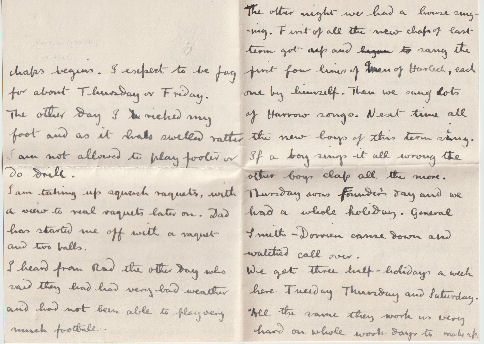 chaps begins. I expect to be fag
for about Thursday or Friday.
The other day I ricked my
foot and as it has swelled rather
I am not allowed to play footer or
do drill.
I am taking up squash raquets, with
a view to real raquets later on. Dad
has started me off with a raquet
and two balls.
I heard from Rad the other day who
said they had had very bad weather
and had not been able to play very
much football.
The other night we had a house sing-
-ing. First of all the new chaps of last
term got up and began to sang the
first four lines of Men of Harlech, each
one by himself. Then we sung lots
of Harrow songs. Next time all
the new boys of this term sing.
If a boy sings it all wrong the
other boys clap all the more.
Thursday was Founder's day and we
had a whole holiday. General
Smith-Dorrien came down and
watched call over.
We get three half-holidays a week
here Tuesday Thursday and Saturday.
All the same they work us very
hard on whole work days to make up